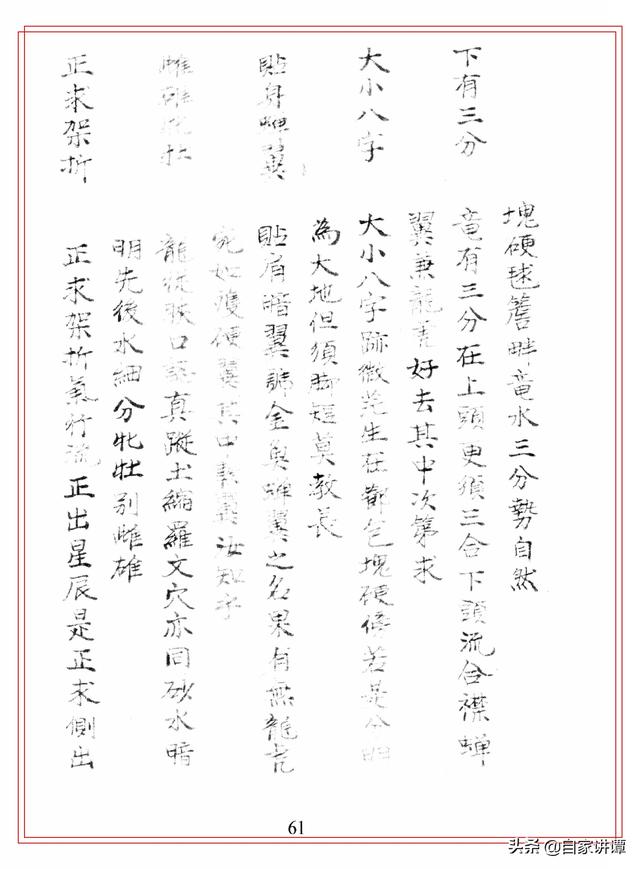 塊硬毬簷畔竜水三分勢自然
下有三分 竜有三分在上頭更須三合下頭流合襟蟬
翼兼龍虎好去其中次第求
大小八字 大小八字跡微茫生在都包塊硬傍若是分明
為大地但須脚短莫教長
貼身蟬翼 貼肩暗翼號金魚蟬翼之名果有無龍虎
宛如護硬翼其中軟翼汝知乎
雌雄牝牡 龍從脈口認真蹤土縮羅文穴亦同砂水暗
明先後水細分牝牡別雌雄
正求架折 正求架折氣行流正出星辰是正求側出
61
头条 @自家讲谭